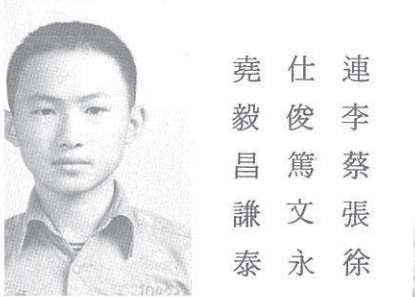 連仕堯
李俊毅
蔡篤昌
張文謙
徐永泰